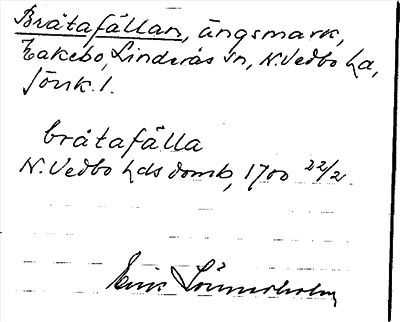 Bråtafällan, ängsmark,
Eakebo, Linderås sn, N. Vedbo hd,
Jönk. l.
bråtafälla
N. Vedbo hds domb, 1700 22/2
Erik